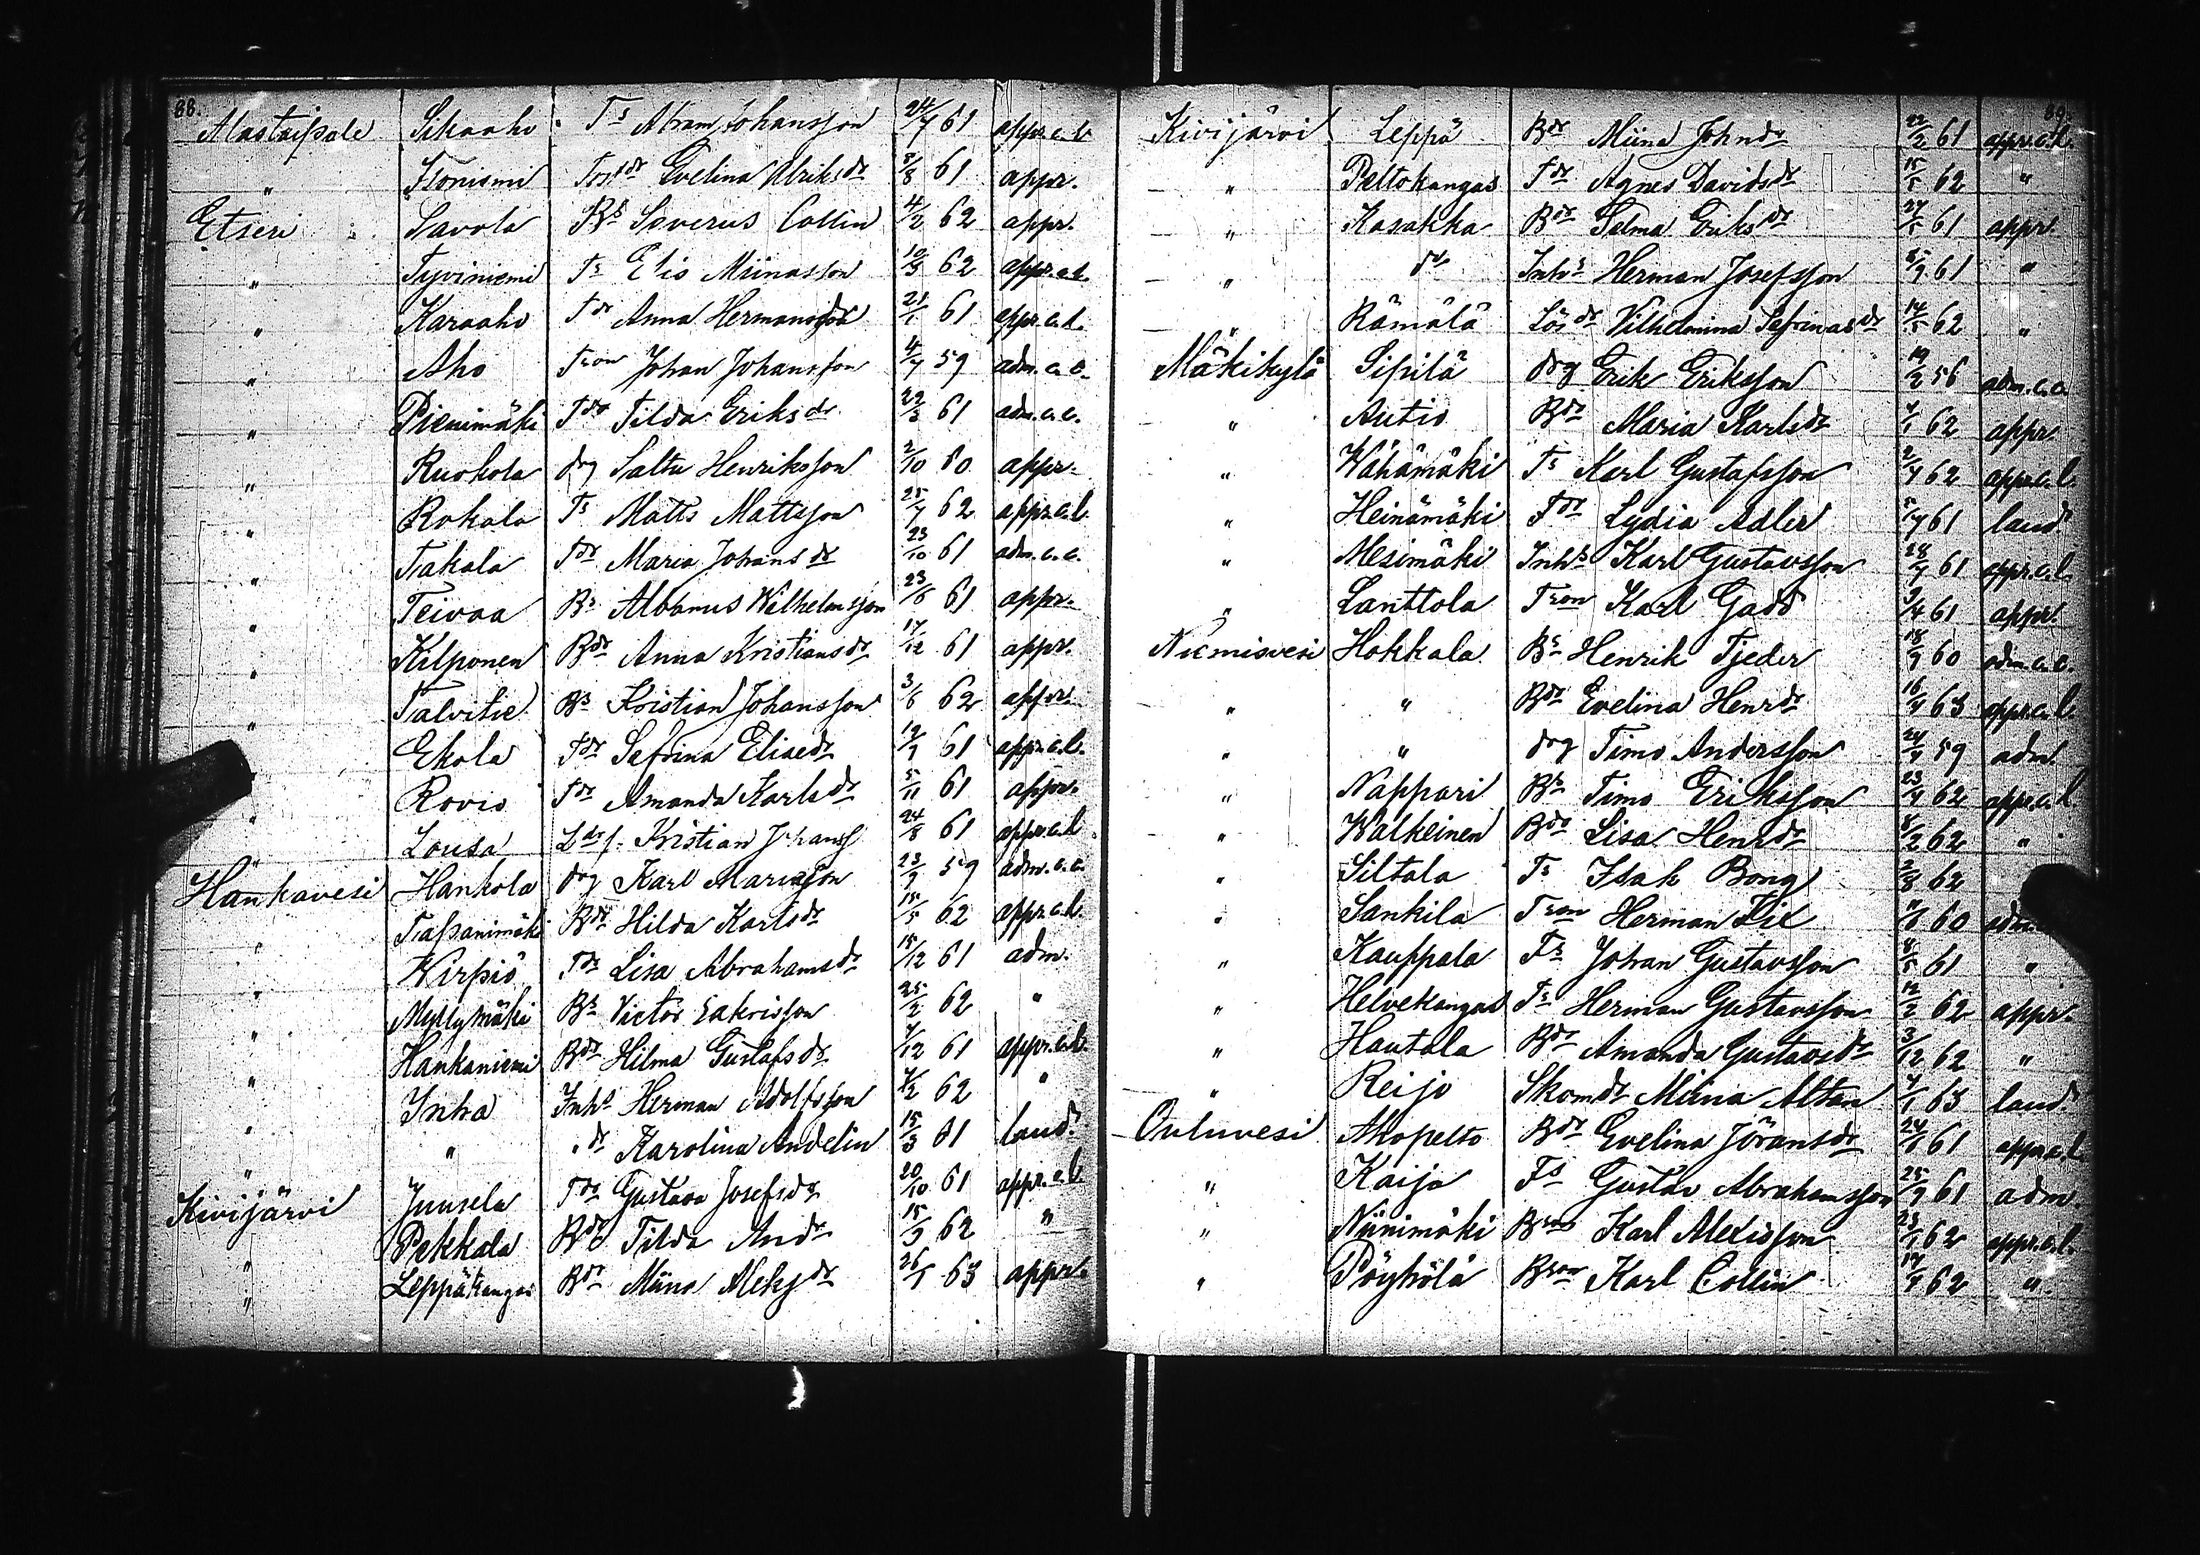 88.
Alastaipale Sikaaho Ts Abram Johansson 24/7 61 appr.c.l.
" Isoniemi Torpdr Evelina Ulriksdr 5/8 61 appr.
Etseri Savola Bs Severus Collin 4/2 62 appr.
" Tyviniemi Ts Elis Miinasson 10/3 62 appr.c.l.
" Karaaho Tdr Anna Hermansdr 21/1 61 appr.c.l.
" Aho Tson Johan Johansson 4/7 59 adm.c.c.
" Pienimäki Tdr Tilda Eriksdr 22/3 61 adm.c.c.
" Ruokola drg Saltu Henriksson 2/10 60 appr.
" Rokala Ts Matts Mattsson 25/7 62 appr.c.l.
" Takala Tdr Maria Johansdr 23/10 61 adm.c.c.
" Teivaa Bs Albanus Wilhelmsson 23/6 61 appr.
" Kilponen Bdr Anna Kristiansdr 17/12 61 appr.
" Talvitie Bs Kristian Johansson 3/6 62 appr.
" Ekola Tdr Sefrina Elisedr 12/7 61 appr.c.l.
" Rovio Tdr Amanda Karlsdr 5/11 61 appr.
" Lousa Kristian Johanss 24/8 61 appr.c.l.
Hankavesi Hankola drg Karl Mariasson 23/9 59 adm.c.c.
" Tapanimäki Bdr Hilda Karlsdr 15/5 62 appr.c.l.
" Kirpiö Tdr Lisa Abrahamsdr 15/12 61 adm.
" Myllymäki Bs Victor Zakrisson 25/2 62 "
" Hankaniemi Bdr Hilma Gustafsdr 7/12 61 appr.c.l.
" Inha Inhs Herman Adolfsson 4/2 62 "
" " dr Karolina Andelin 15/3 61 laud.
Kivijärvi Juusela Tdr Gustava Josefsdr 20/10 61 appr.c.l.
" Pekkala Bdr Tilda Anddr 15/3 62 "
" Leppäkangas Bdr Miina Aleksdr 26/1 63 appr.
89.
Kivijärvi Leppä Bdr Miina Johndr 22/2 61 appr.c.l.
" Peltokangas Tdr Agnes Davidsdr 15/5 62 "
" Kasakka Bdr Selma Eriksdr 27/5 61 appr.
" do Inhs Herman Josefsson 5/9 61 "
" Rämälä Lösdr Vilhelmina Sefrinasdr 14/5 62 "
Mäkikylä Sipilä drg Erik Eriksson 19/2 56 adm.c.c.
" Autio Bdr Maria Karlsdr 7/1 62 appr.
" Wähämäki Ts Karl Gustafsson 2/4 62 appr.c.l.
" Heinämäki Tdr Lydia Adler 5/7 61 laud
" Mesimäki Inhs Karl Gustavsson 28/7 61 appr.c.l.
" Lanttola Tson Karl Gadd 9/4 61 appr.
Niemisvesi Hokkala Bs Henrik Tjeder 18/9 60 adm.c.c.
" " Bdr Evelina Henrdr 16/4 63 appr.c.l.
" " drg Timo Andersson 24/4 59 adm.
" Nappari Bs Timo Eriksson 23/4 62 appr.c.l.
" Walkeinen Bdr Lisa Henrdr 8/2 62 "
" Siltala Ts Isak Bong 2/8 62
" Sankila Tson Herman Lix 60
" Kauppala Ts Johan Gustavsson 8/5 61 "
" Helvekangas Ts Herman Gustavsson 12/2 62 appr.
" Hautala Bdr Amanda Gustavsdr 3/12 62 "
" Reijo Skomdr Miina Altan 4/1 63 laud.
Ouluvesi Ahopelto Bdr Evelina Göransdr 61 appr.c.l.
" Kaija Ts Gustav Abrahamsson 25/9 61 adm.
" Niinimäki Bson Karl Alexisson 23/1 62 appr.c.l.
" Pöyhölä Bson Karl Collin 17/7 62 "